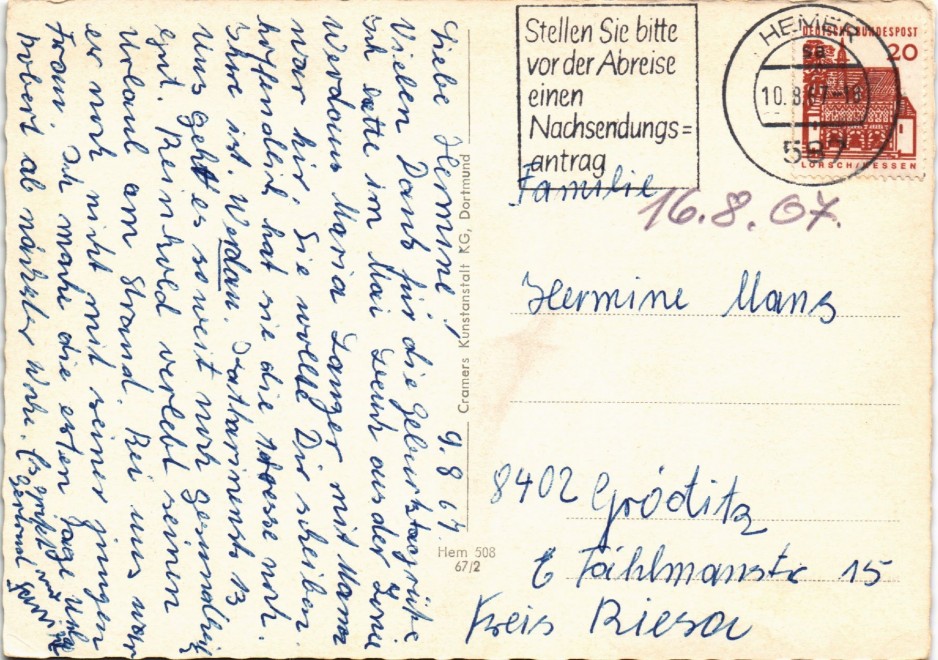 Liebe Hermine! 9.8.67.
Vielen Dank für die Geburtstaggrüße
Ich hatte im Mai Besuch aus der Zone
Werdaus Maria Langer mit Mann
war hir. Sie wollte Dir schreiben
hoffendlich hat sie die Adresse noch.
Ihre ist. Werdau. Katharinenstr 13
Uns geht es soweit noch gesundheitl
gut. Reinhold verlebt seinen
Urlaub am Strand. Bei uns war
er noch nicht mit seiner jungen
Frau. Ich mache die ersten Tage Urla
Robert ab nächster Woche. Es grüßt
Cramers Kunstanstalt KG, Dortmund
Hem 508
67/2
Stellen Sie bitte
vor der Abreise
einen
Nachsendungs=
antrag
HEMER
sa
10.8.67-18
587
DEUTSCHE BUNDESPOST
20
LORSCH/HESSEN
16.8.07.
Familie
Hermine Mans
8402 Gröditz
E Fählmanstr 15
Kreis Riesa